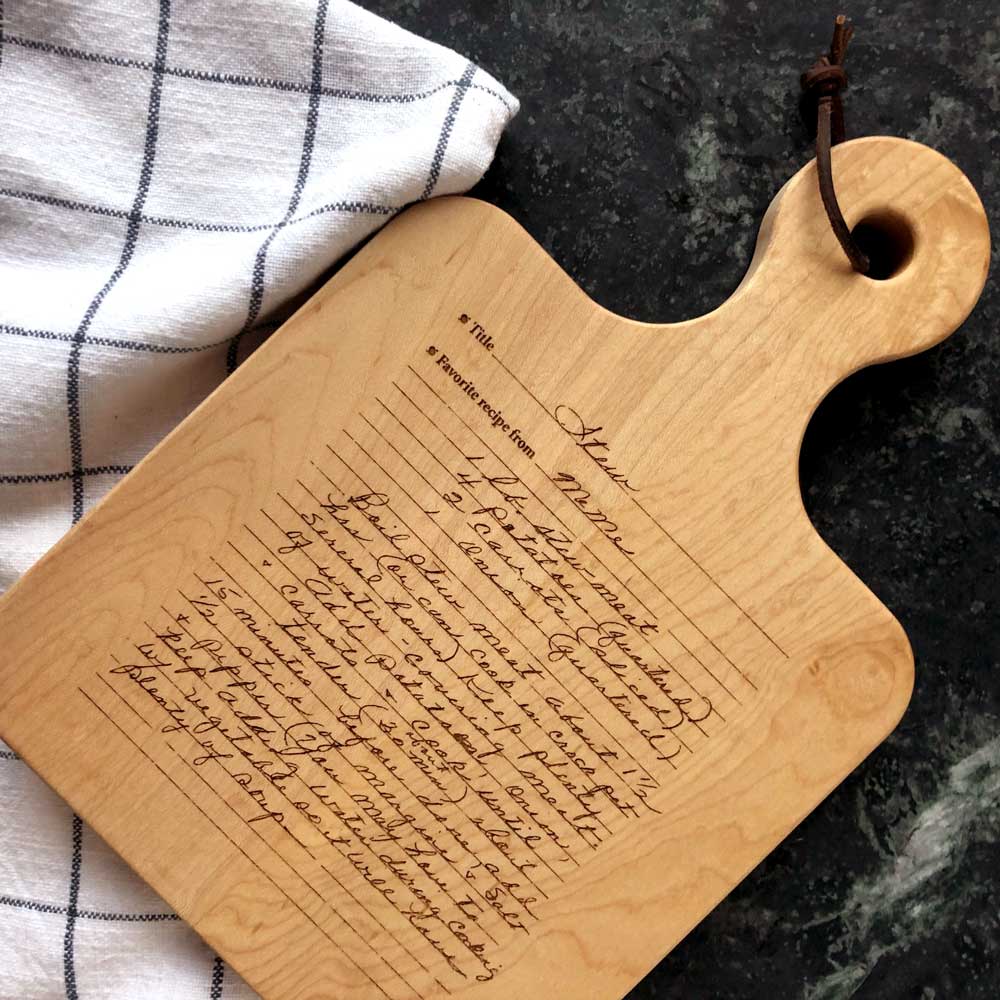 Title Stew
Favorite recipe from MeMe
1 lb. stew meat
4 Potatoes (quartered)
2 Carrots (sliced)
1 onion (quartered)
Boil stew meat about 1 1/2
hrs (or can cook in croc pot
several hours) Keep plenty
of water - covering meat.
Add Potatoes, onion,
+ carrots - cook until
tender (about 30 min)
15 minutes before done add
1/2 stick of margarine + Salt
+ Pepper (You may have to
keep adding water during cooking
w/ vegetables so it will have
plenty of soup